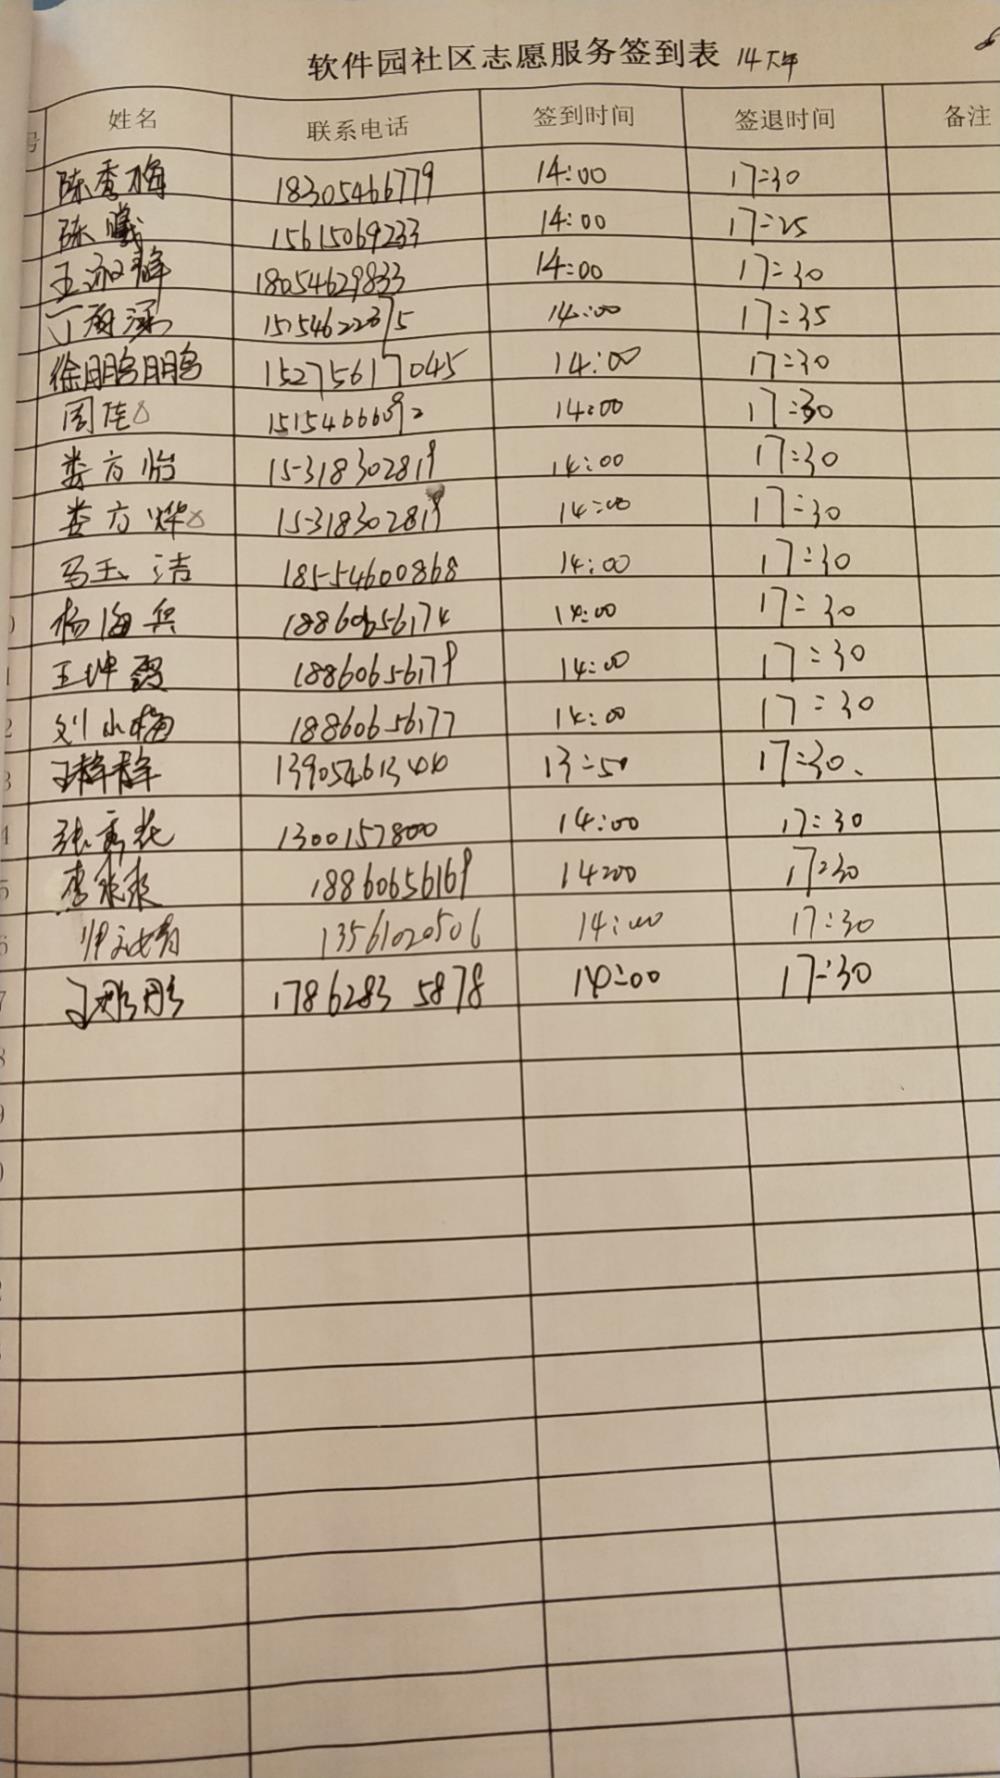 软件园社区志愿服务签到表 14下午
号 姓名 联系电话 签到时间 签退时间 备注
陈秀梅 18305466779 14:00 17:30
陈曦 15615069233 14:00 17:25
王淑静 18054629833 14:00 17:30
丁 15154622375 14:00 17:35
徐鹏鹏 15275617045 14:00 17:30
周佳 15154666092 14:00 17:30
娄方怡 15318302819 14:00 17:30
娄方烨 15318302819 14:00 17:30
马玉洁 18554600868 14:00 17:30
杨海兵 18860656174 14:00 17:30
王坤霞 18860656179 14:00 17:30
刘小梅 18860656177 14:00 17:30
王静静 13:50 17:30、
张秀花 1300157800 14:00 17:30
李 18860656169 14:00 17:30
13561020506 14:00 17:30
王彤彤 17862835878 14:00 17:30